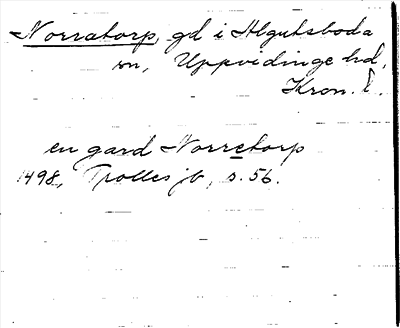 Norratorp, gd i Algutsboda
sn, Uppvidinge hd,
Kron. l.
en gard Norretorp
1498, Trolles jb, s. 56.